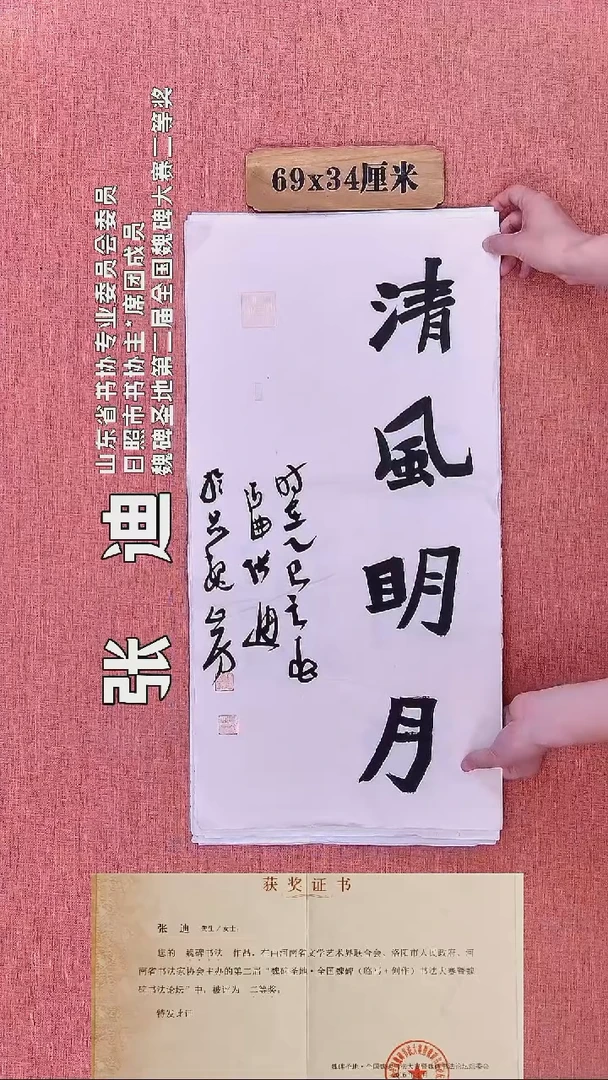 69x34厘米
清風明月
时在乙巳之
张迪
山东省书协专业委员会委员
日照市书协主*席团成员
魏碑圣地第二届全国魏碑大赛二等奖
张 迪
获奖证书
张 迪 先生/女士:
您的 魏碑书法 作品,在由河南省文学艺术界联合会、洛阳市人民政府、河
南省书法家协会主办的第二届“魏碑圣地·全国魏碑(临书+创作)书法大赛暨魏
碑书法论坛”中,被评为 二等奖。
特发此证